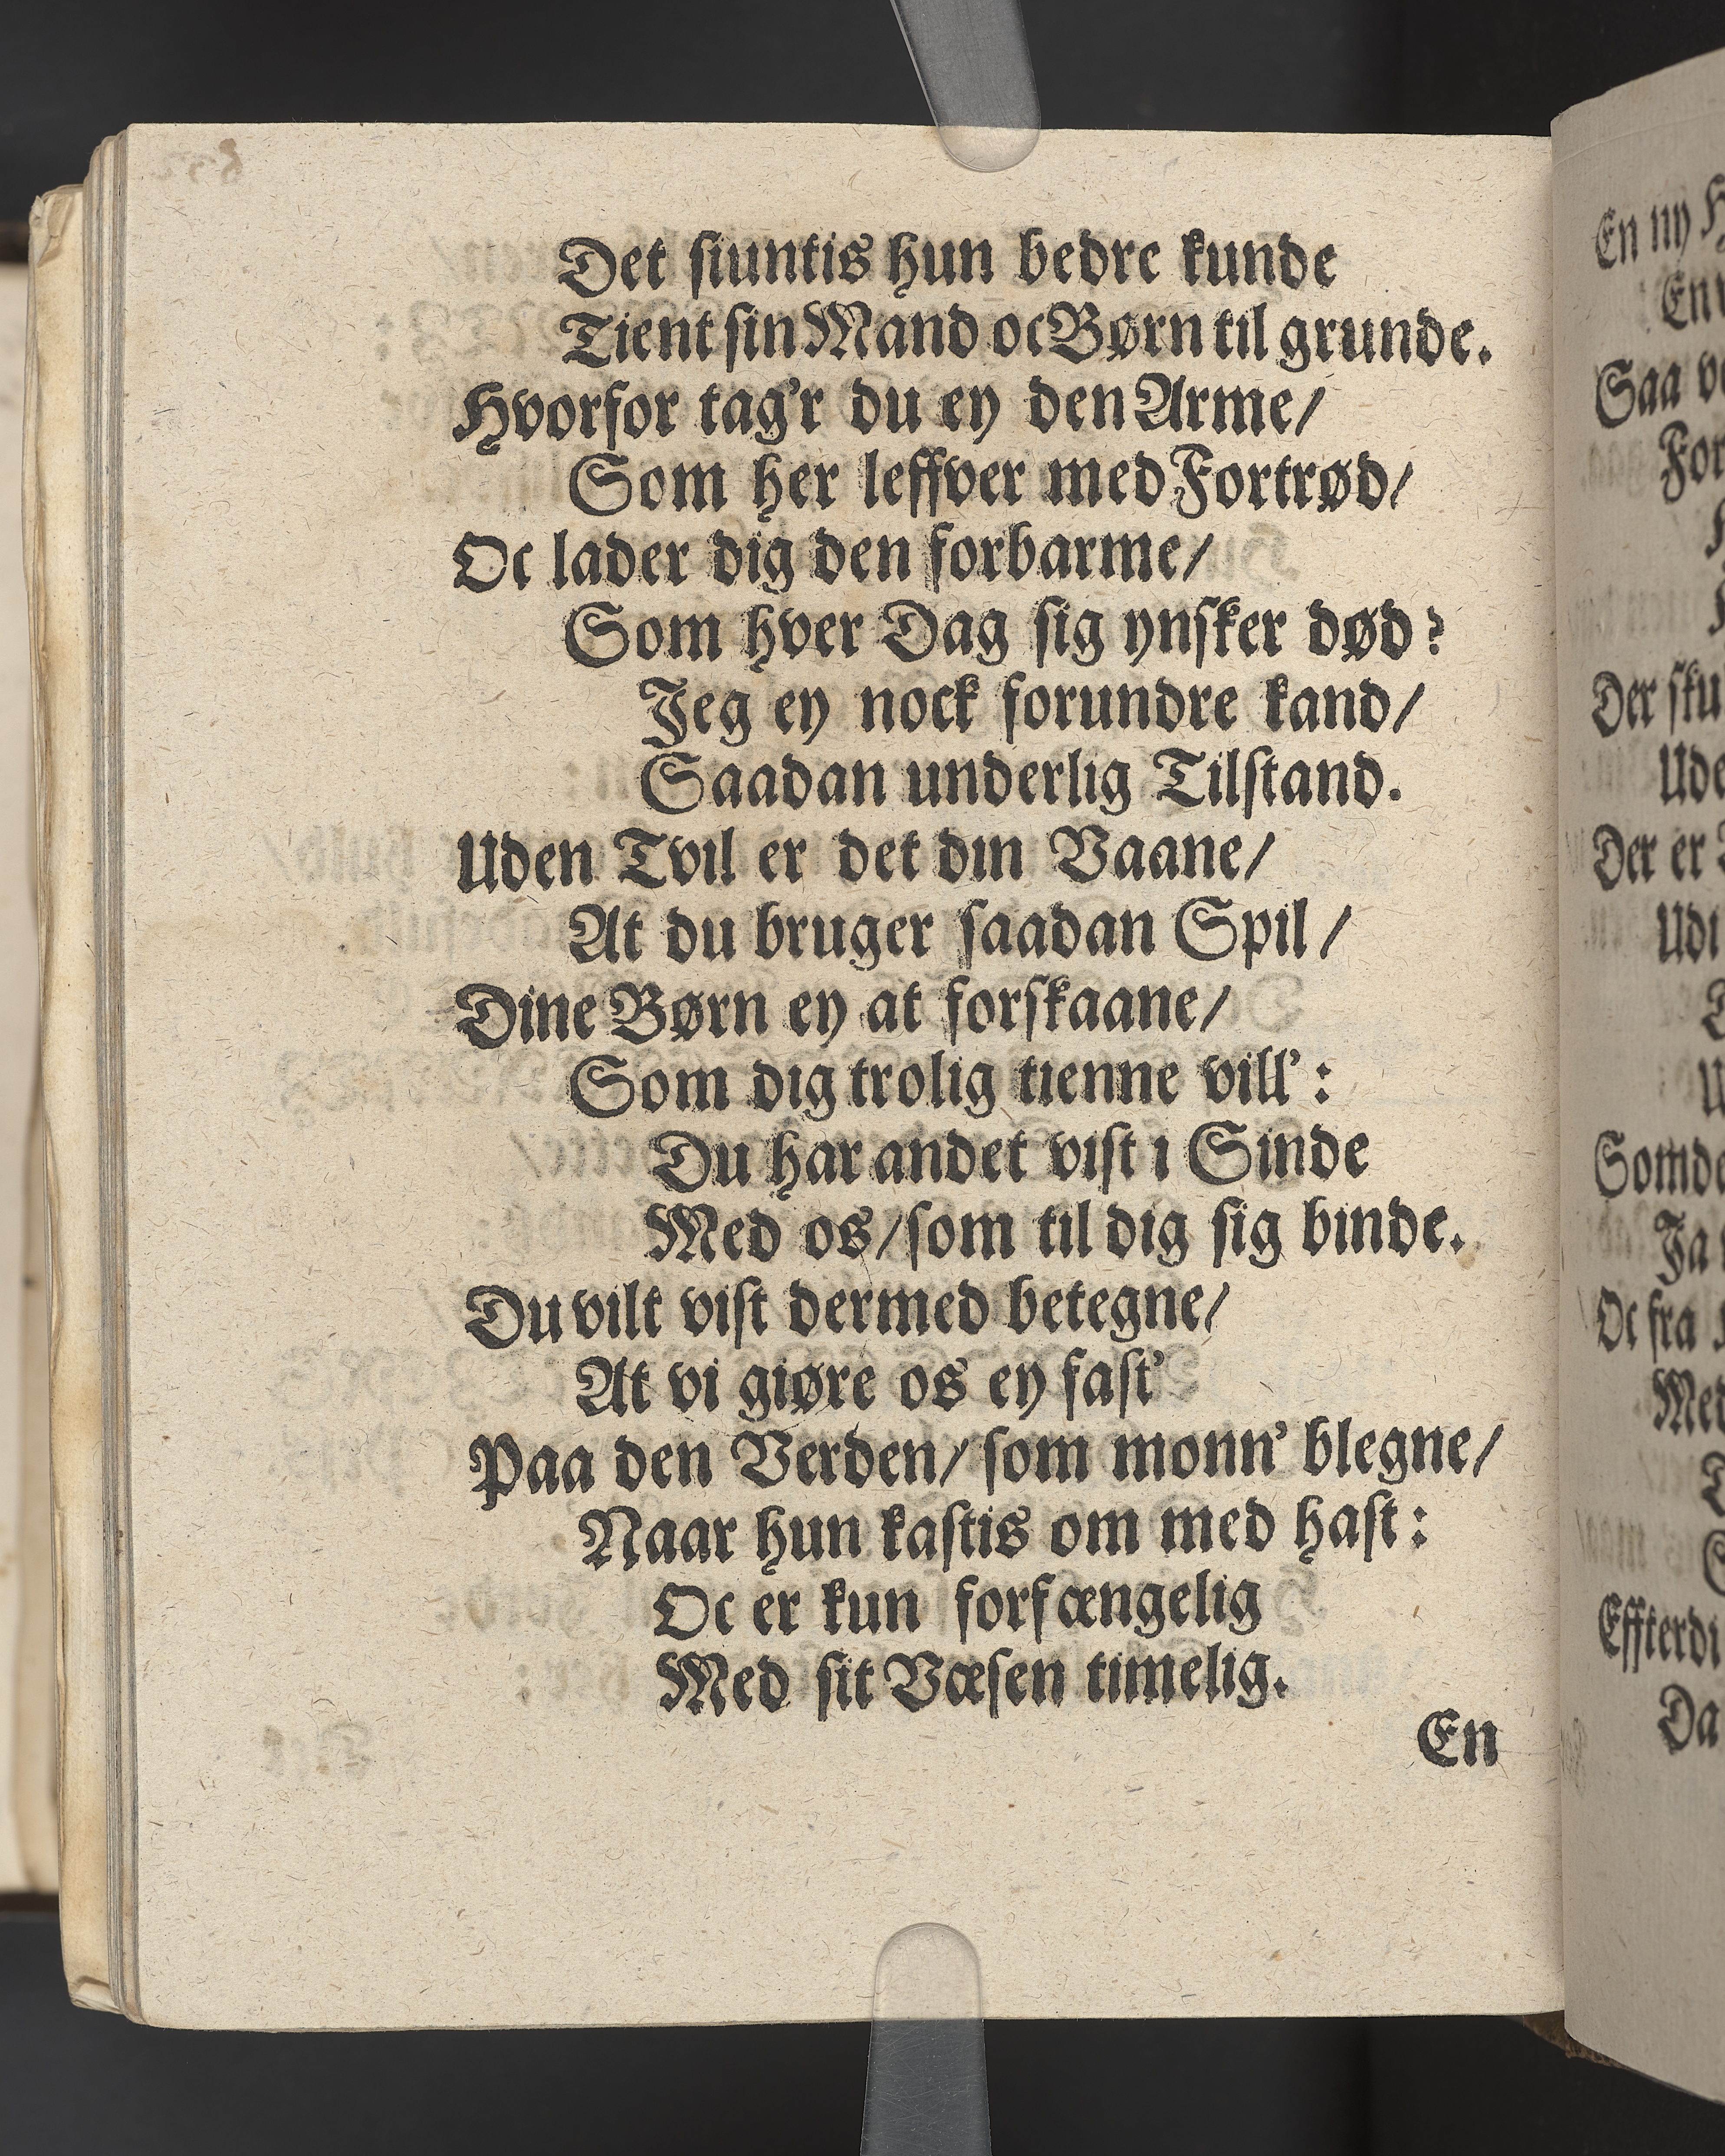 Det siuntis hun bedre kunde
Tient sin Mand oc Børn til grunde.
Hvorfor tag'r du ey den Arme/
Som her leffver med Fortrød/
Oc lader dig den forbarme/
Som hver Dag sig ynsker død?
Jeg ey nock forundre kand/
Saadan underlig Tilstand.
Uden Tvil er det din Vaane/
At du bruger saadan Spil/
Dine Børn ey at forskaane/
Som dig trolig tienne vill':
Du har andet vist i Sinde
Med os/ som til dig sig binde.
Du vilt vist dermed betegne/
At vi giøre os ey fast'
Paa den Verden/ som monn' blegne/
Naar hun kastis om med hast:
Oc er kun forfængelig
Med sit Væsen timelig.
En
En ny
Saa
For
Der
Der er
Udi
Ja
Oc fra
Da